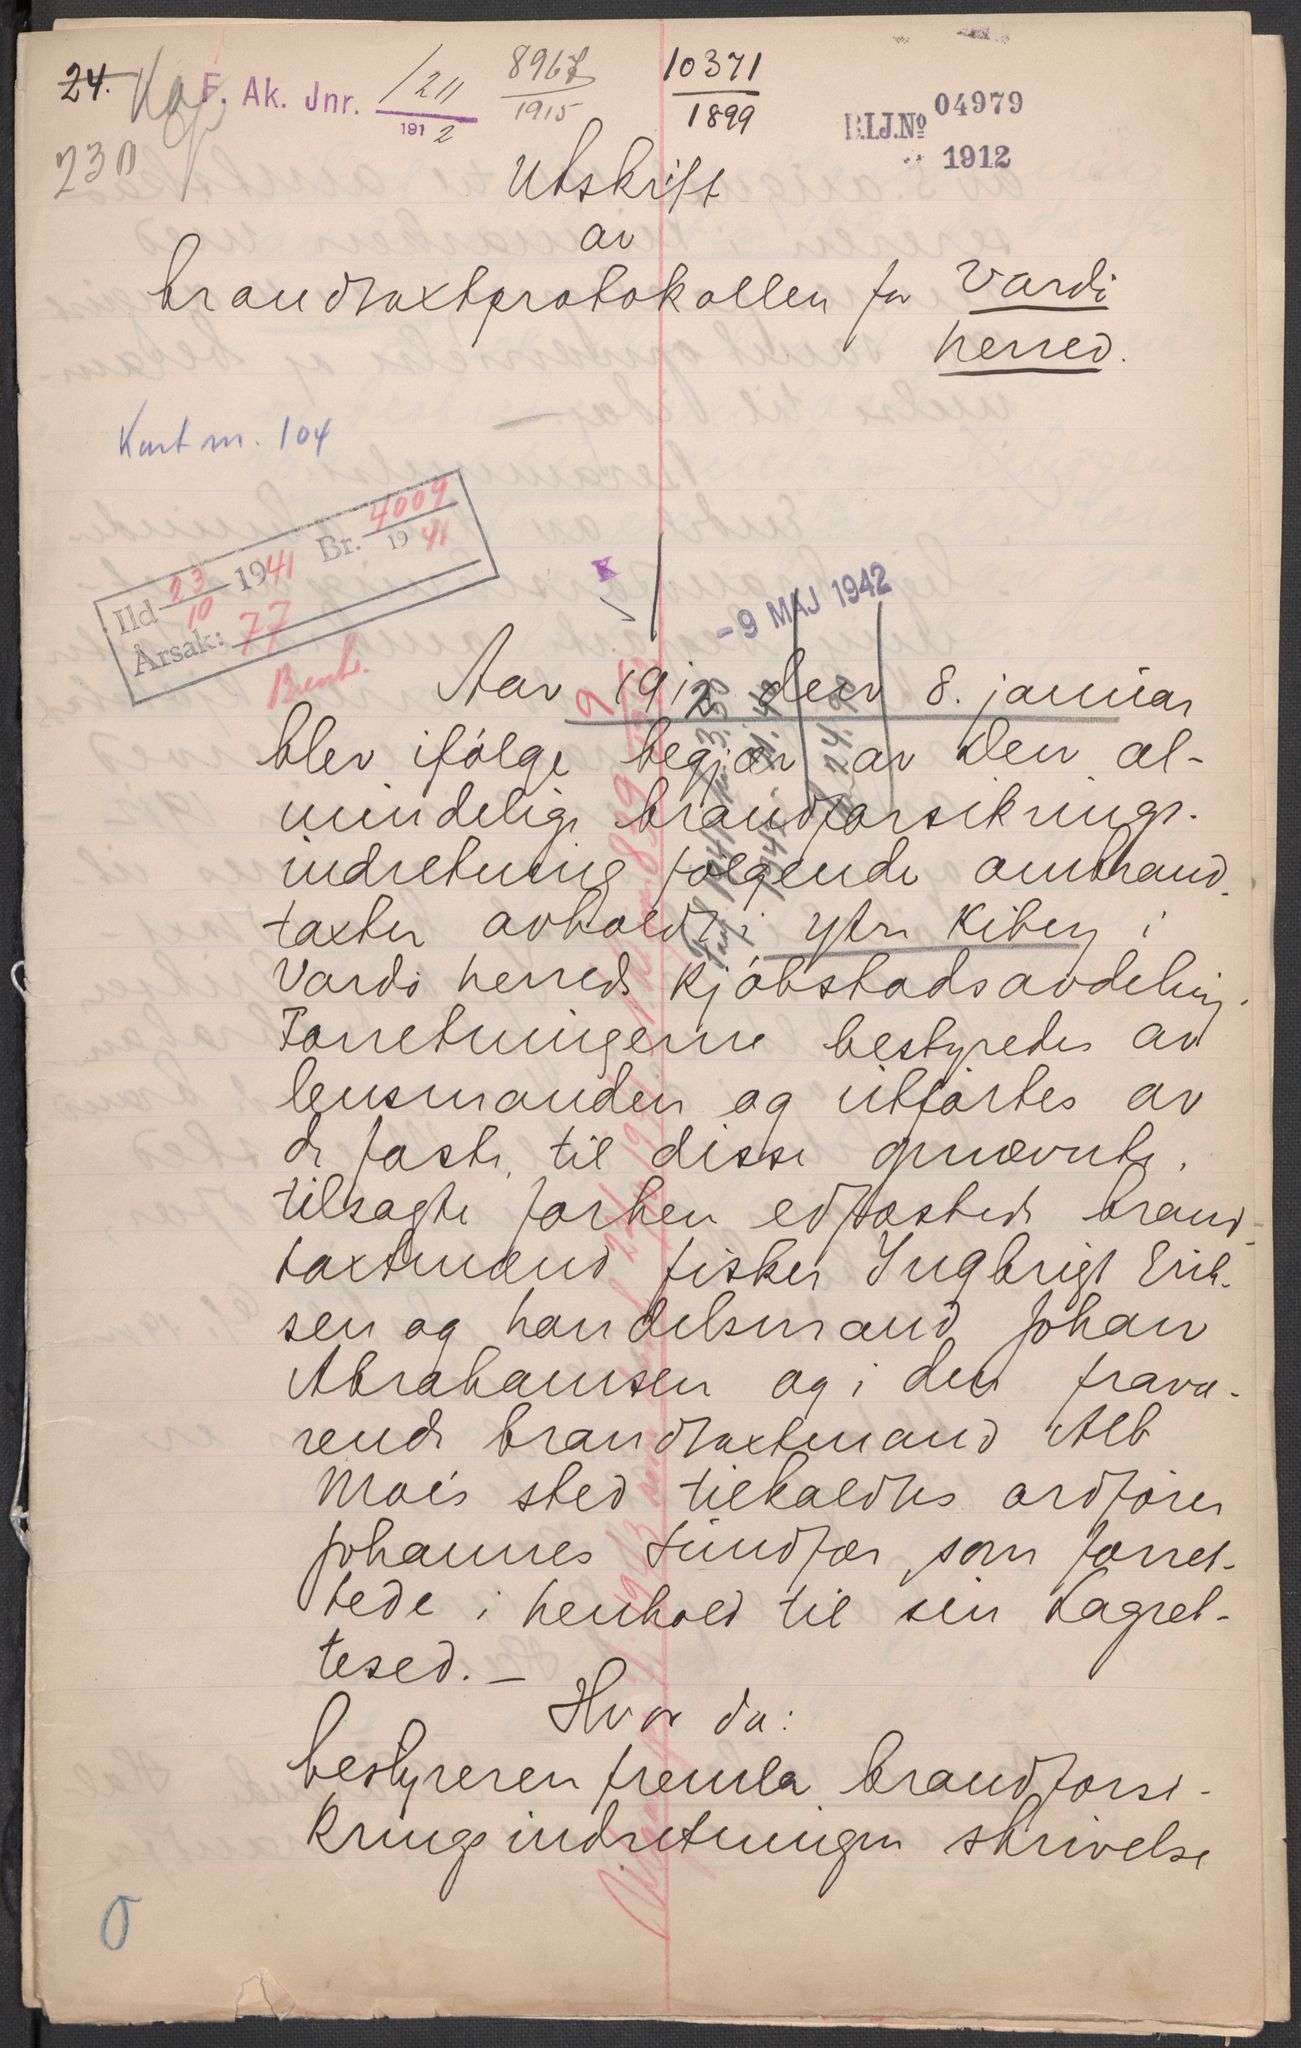 24.
F. Ak. Jnr. 1211
1912
8967
1915
10371
1899
B.I.J.No 04979
1912
230
Utskrift
av
brandtaxtprotokollen for Vardö
herred.
Kart nr. 104
Ild 23/10 1941 Br. 4009
1941
Årsak: 77
Brent.
K
- 9 MAJ 1942
Aar 1912 den 8. januar
blev ifölge begjær av Den al-
mindelige brandforsikrings-
indretning følgende ombrand-
taxter avholdt i ytre Kiberg i
Vardö herreds kjöbstadsavdeling.
Forretningerne bestyredes av
lensmanden og utförtes av
de faste, til disse opnævnte,
tilsagte forhen edfæstede brand-
taxtmænd fisker Ingbrigt Erik-
sen og handelsmand Johan
Abrahamsen og i den fravæ-
rende brandtaxtmand Alb
Moes sted tilkaldtes ordförer
Johannes Sundfær som forret-
tede i henhold til sin Lagret-
tesed. -
Hvor da:
bestyreren fremla brandforsi-
kringsindretningen skrivelse
0